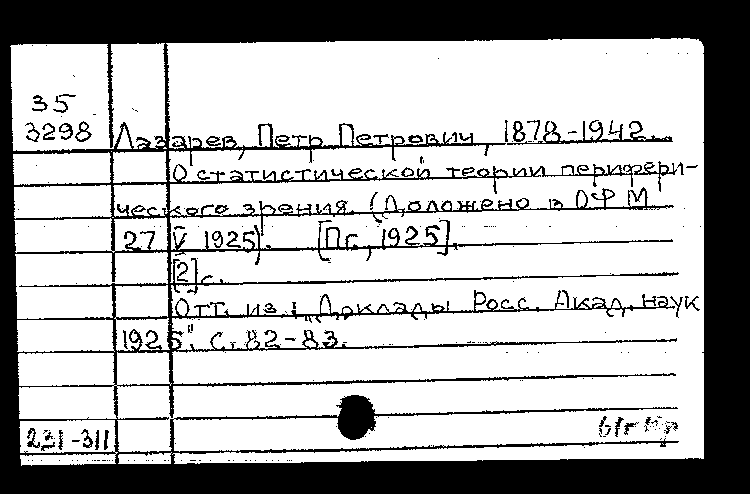 35
3298
Лазарев, Петр Петрович, 1878-1942.
О статистической теории перифери-
ческого зрения. (Доложено в ОФМ
27 V 1925). [Пг., 1925].
[2] с.
Отт. из: „Доклады Росс. Акад. наук
1925". с. 82-83.
231-311